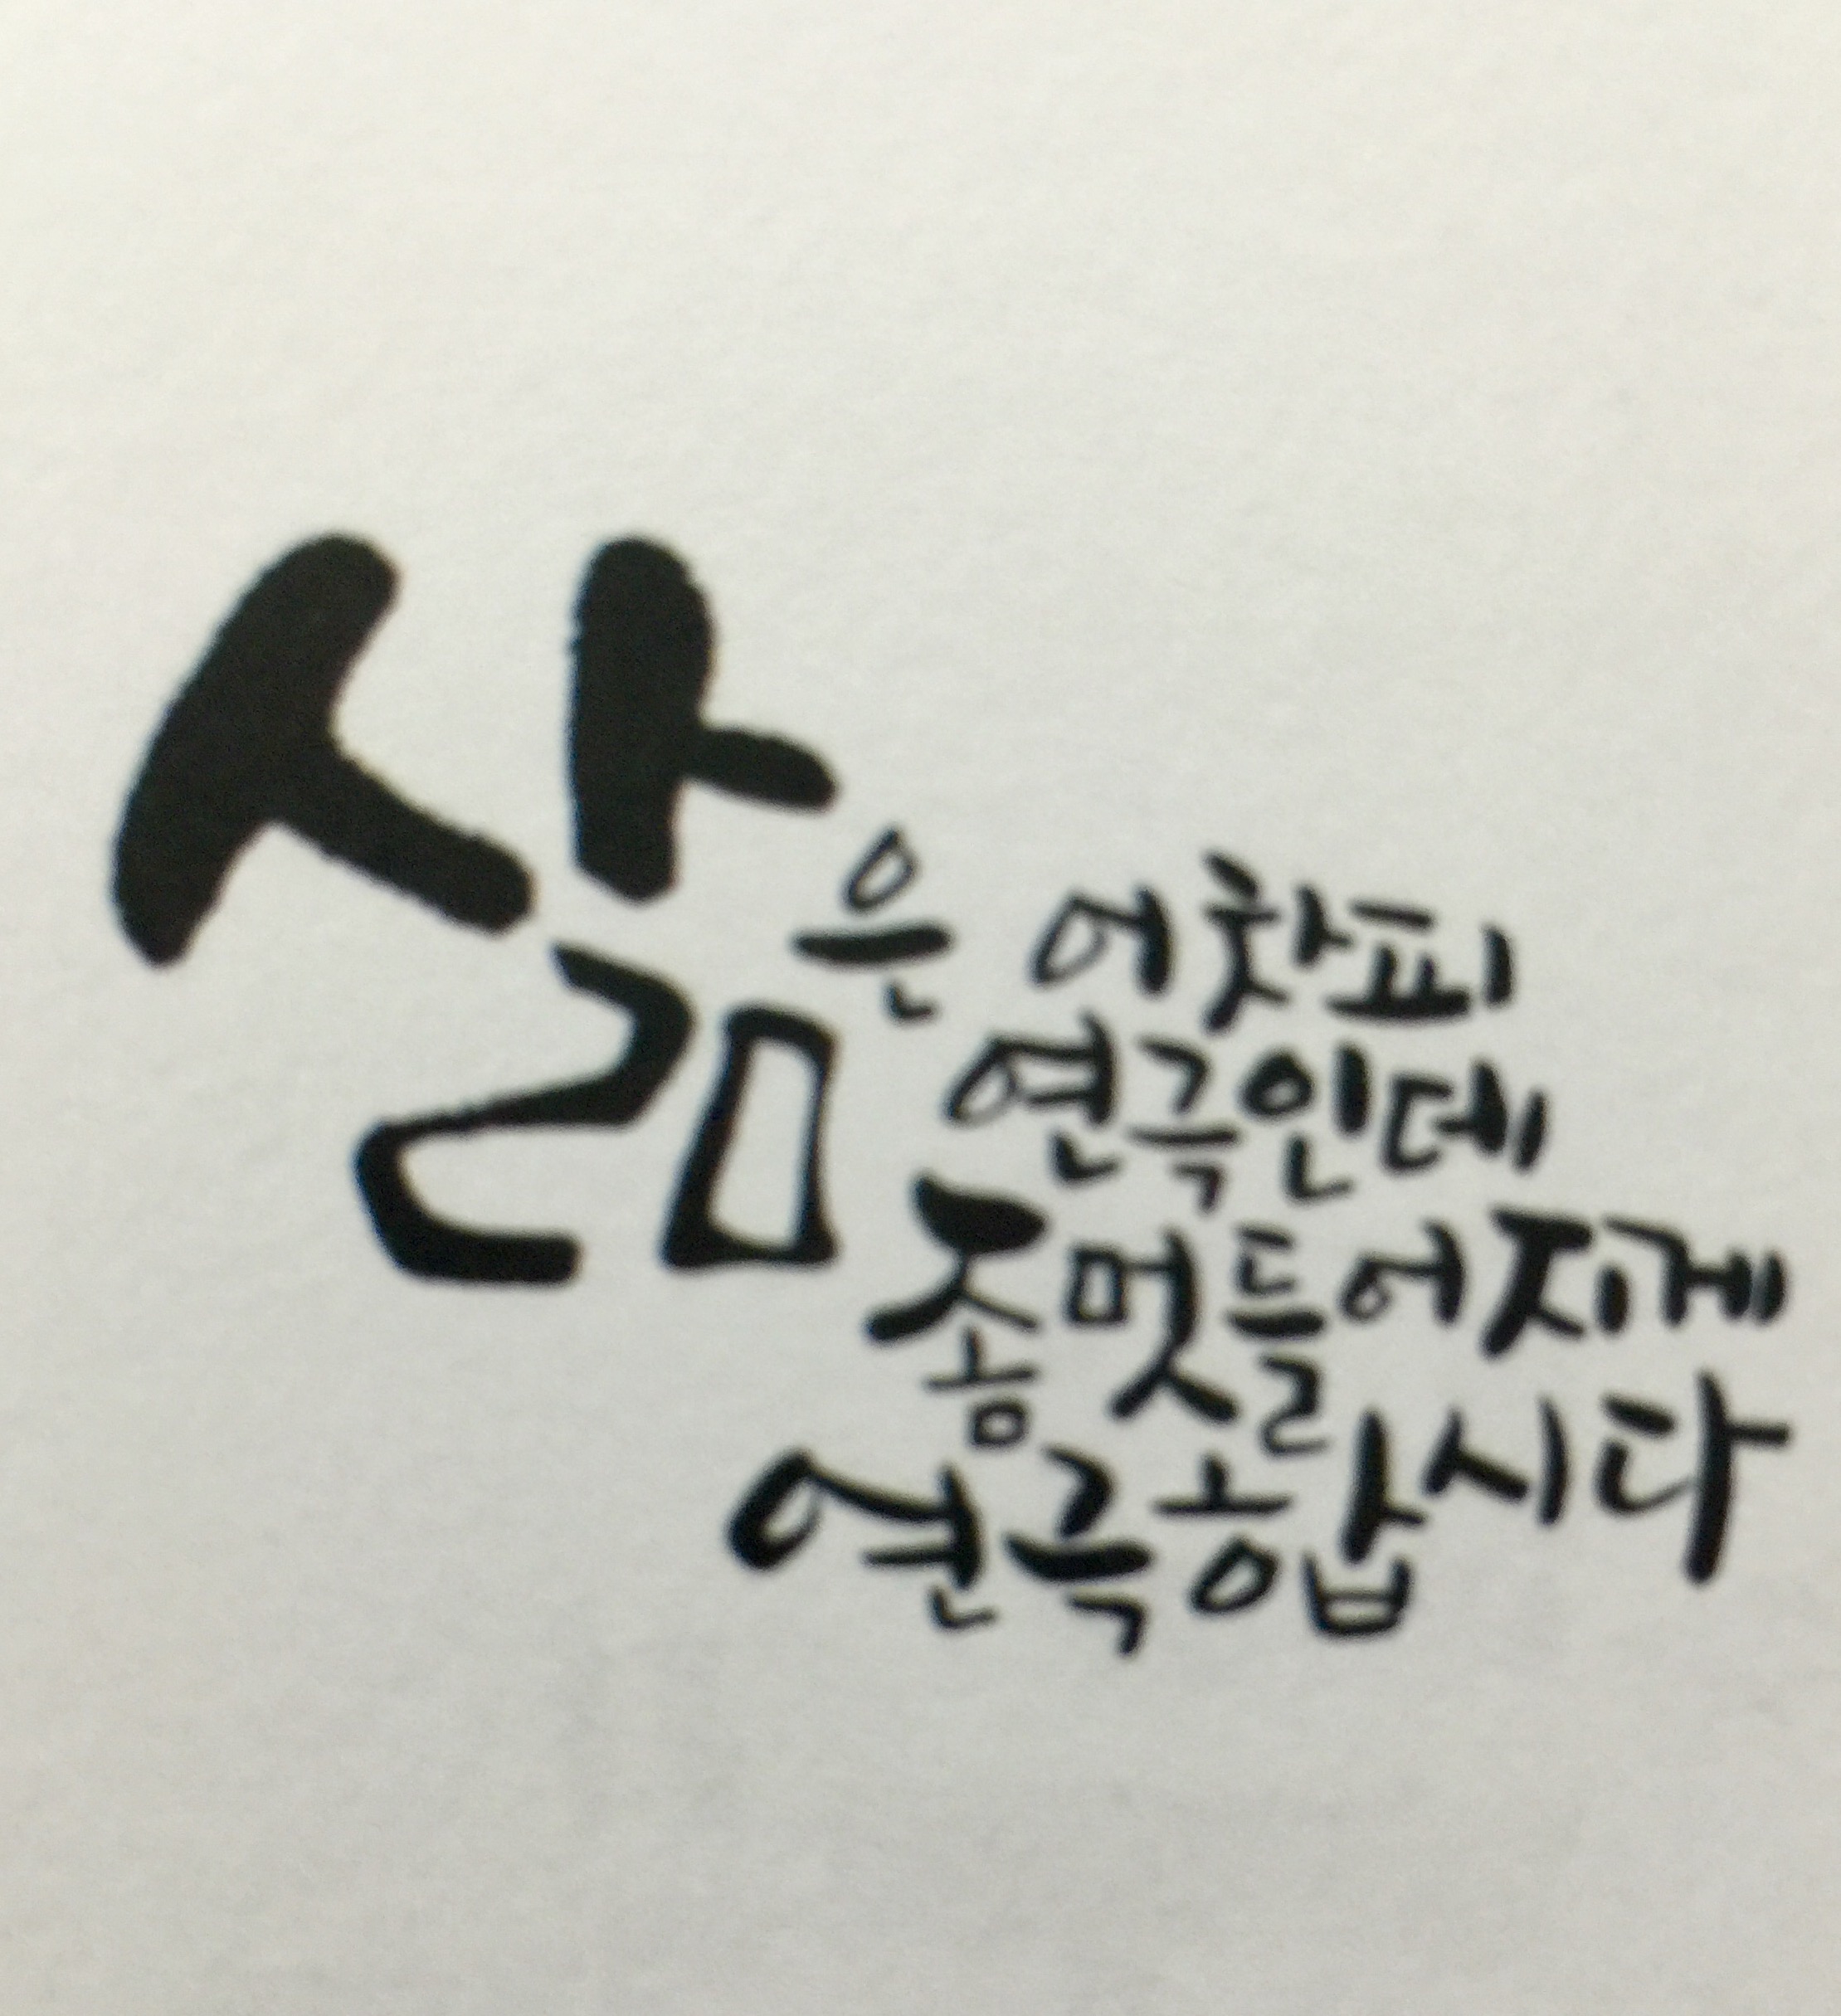 삶은 어차피
연극인데
좀 멋들어지게
연극합시다